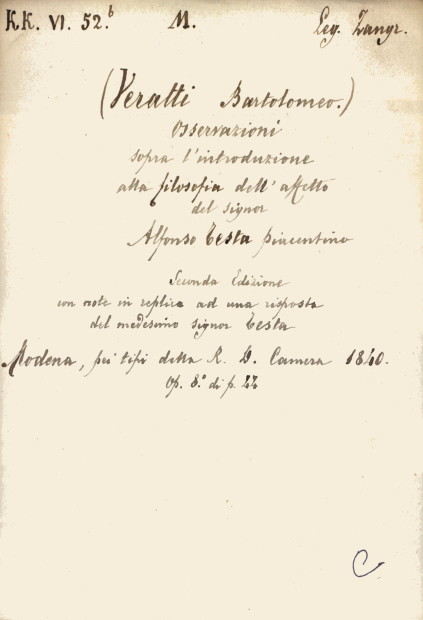 KK. VI. 52.b M. Leg. Zangr.
(Veratti Bartolomeo.)
Osservazioni
sopra l'introduzione
alla filosofia dell'affetto
del signor
Alfonso Testa piacentino
Seconda Edizione
con note in replica ad una risposta
del medesimo signor Testa
Modena, pei tipi della R. D. Camera 1840.
Op. 8.° di p. 44
C